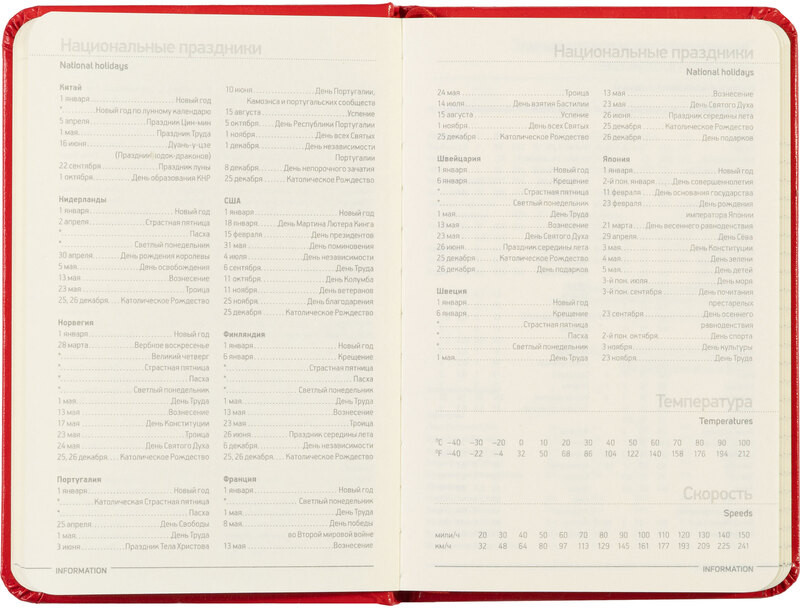 Национальные праздники
National holidays
Китай
1 января Новый год
* Новый год по лунному календарю
5 апреля Праздник Цин-мин
1 мая Праздник Труда
16 июня Дуань-у-цзе
(Праздник лодок-драконов)
22 сентября Праздник луны
1 октября День образования КНР
Нидерланды
1 января Новый год
2 апреля Страстная пятница
* Пасха
* Светлый понедельник
30 апреля День рождения королевы
5 мая День освобождения
13 мая Вознесение
23 мая Троица
25, 26 декабря Католическое Рождество
Норвегия
1 января Новый год
28 марта Вербное воскресенье
* Великий четверг
* Страстная пятница
* Пасха
* Светлый понедельник
1 мая День Труда
13 мая Вознесение
17 мая День Конституции
23 мая Троица
24 мая День Святого Духа
25, 26 декабря Католическое Рождество
Португалия
1 января Новый год
* Католическая Страстная пятница
* Пасха
25 апреля День Свободы
1 мая День Труда
3 июня Праздник Тела Христова
10 июня День Португалии,
Камоэнса и португальских сообществ
15 августа Успение
5 октября День Республики Португалии
1 ноября День всех Святых
1 декабря День независимости
Португалии
8 декабря День непорочного зачатия
25 декабря Католическое Рождество
США
1 января Новый год
18 января День Мартина Лютера Кинга
15 февраля День президентов
31 мая День поминовения
4 июля День независимости
6 сентября День Труда
11 октября День Колумба
11 ноября День ветеранов
25 ноября День благодарения
25 декабря Католическое Рождество
Финляндия
1 января Новый год
6 января Крещение
* Страстная пятница
* Пасха
* Светлый понедельник
1 мая День Труда
13 мая Вознесение
23 мая Троица
26 июня Праздник середины лета
6 декабря День независимости
25, 26 декабря Католическое Рождество
Франция
1 января Новый год
* Светлый понедельник
1 мая День Труда
8 мая День победы
во Второй мировой войне
13 мая Вознесение
INFORMATION
Национальные праздники
National holidays
24 мая Троица
14 июля День взятия Бастилии
15 августа Успение
1 ноября День всех Святых
25 декабря Католическое Рождество
Швейцария
1 января Новый год
6 января Крещение
* Страстная пятница
* Светлый понедельник
1 мая День Труда
13 мая Вознесение
23 мая День Святого Духа
26 июня Праздник середины лета
25 декабря Католическое Рождество
26 декабря День подарков
Швеция
1 января Новый год
6 января Крещение
* Страстная пятница
* Пасха
* Светлый понедельник
1 мая День Труда
13 мая Вознесение
23 мая День Святого Духа
26 июня Праздник середины лета
25 декабря Католическое Рождество
26 декабря День подарков
Япония
1 января Новый год
2-й пон. января День совершеннолетия
11 февраля День основания государства
23 февраля День рождения
императора Японии
21 марта День весеннего равноденствия
29 апреля День Сёва
3 мая День Конституции
4 мая День зелени
5 мая День детей
3-й пон. июля День моря
3-й пон. сентября День почитания
престарелых
23 сентября День осеннего
равноденствия
2-й пон. октября День спорта
3 ноября День культуры
23 ноября День Труда
Температура
Temperatures
°C -40 -30 -20 0 10 20 30 40 50 60 70 80 90 100
°F -40 -22 -4 32 50 68 86 104 122 140 158 176 194 212
Скорость
Speeds
мили/ч 20 30 40 50 60 70 80 90 100 110 120 130 140 150
км/ч 32 48 64 80 97 113 129 145 161 177 193 209 225 241
INFORMATION